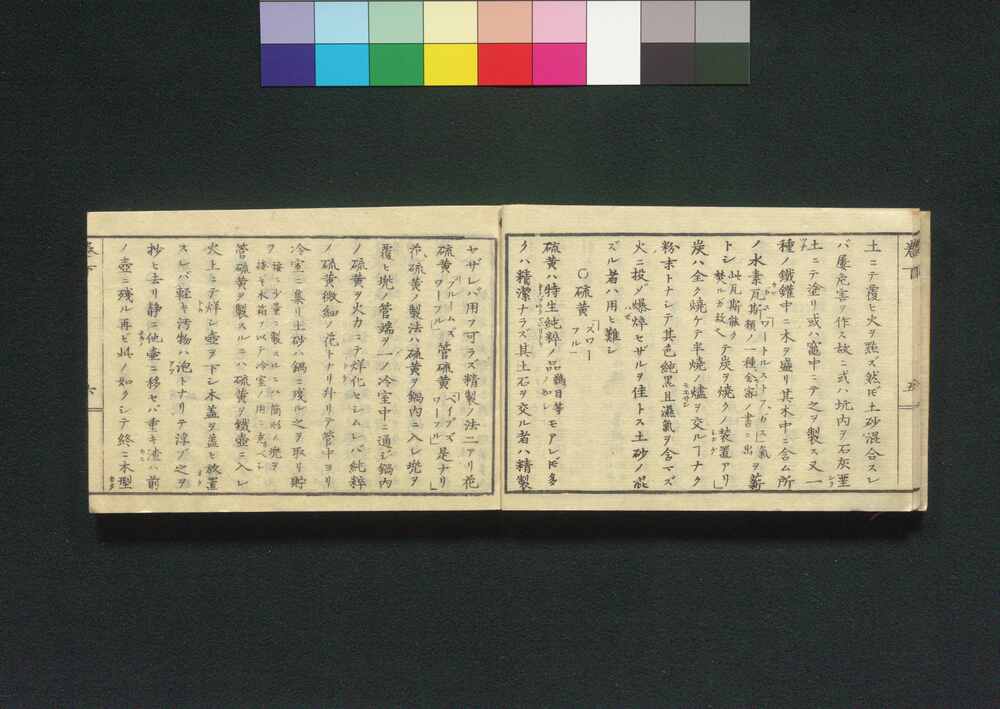 土ニテ覆ヒ火ヲ點ズ然𪜈土砂混合スレ
バ屢危害ヲ作ス故ニ或ハ坑内ヲ石灰堊
土ニテ塗リ或ハ竈中ニテ之ヲ製ス又一
種ノ鐵鑵中ニ木ヲ盛リ其木中ニ含ム所
ノ水素瓦斯類ノ一種舎密ノ書ニ出
「スワートルストフガス」氣ヲ薪
トシ此瓦斯能ク焚ルガ故ヘテ炭ヲ焼クノ装置アリ」
炭ハ全ク焼ケテ半焼ノ燼ヲ交ルヿナク
粉末トナシテ其色純黒且濕氣ヲ含マズ
火ニ投ゾ爆焠セザルヲ佳トス土砂ノ混
ズル者ハ用ヒ難シ
○硫黄「ズワーフル」
硫黄ハ特生純粹ノ品鷄冠等ノ如シモアレ𪜈多
クハ精潔ナラズ其土石ヲ交ル者ハ精製
セザレバ用フ可ラズ精製ノ法二アリ花
硫黄「ブルームズワーフル」管硫黄「ペイプズワーフル」是ナリ」
花硫黄ノ製法ハ硫黄ヲ鍋内ニ入レ兜ヲ
覆ヒ兜ノ管端ヲ一ノ冷室中ニ通シ鍋内
ノ硫黄ヲ火力ニテ烊化セシムレバ純粹
ノ硫黄微細ノ花トナリ升リテ管中ヨリ
冷室ニ集リ土砂ハ鍋ニ残ル之ヲ取リ貯
フ
管硫黄ヲ製スルニハ硫黄ヲ鐵壺ニ入レ
火上ニテ烊シ壺ヲ下シ木蓋ヲ蓋ヒ放置
スレバ軽キ汚物ハ泡トナリテ浮ブ之ヲ
抄ヒ去リ静ニ他壷ニ移セバ重キ渣ハ前
ノ壺ニ残ル再ビ此ノ如クシテ終ニ木型